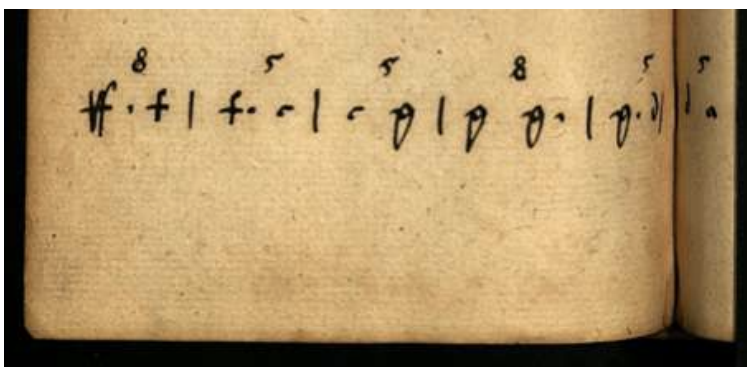 8 5 5 8 5 5
ff . f | f . c | c g | g g . | g . d | d a